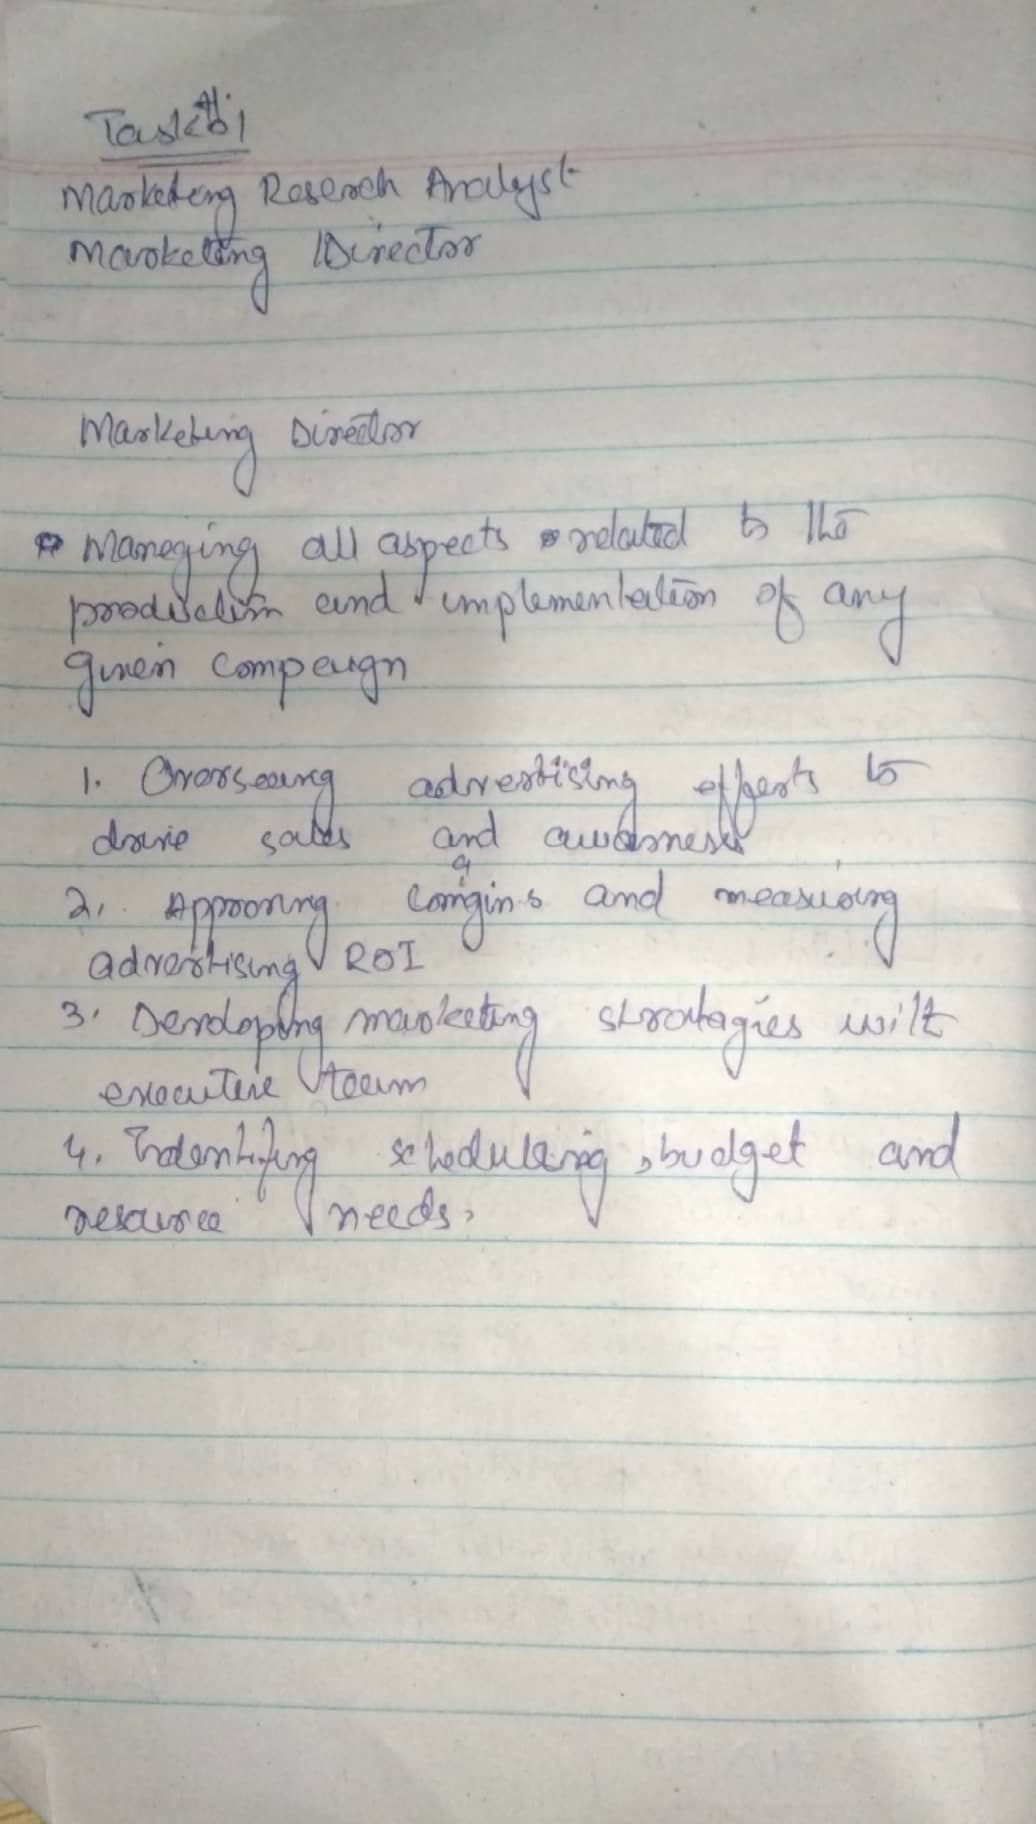 Task 1
Marketing Reserch Analyst
Marketing Director
Marketing Director
Maneging all aspects related to the
production and implementation of any
given compeign
1. Overseeing advertising efferts to
drive sales and awarness
2. Approving and measuring
advertising ROI
3. Developing marketing stratagies with
executive team
4. Indentifing scheduleing, budget and
resource needs.